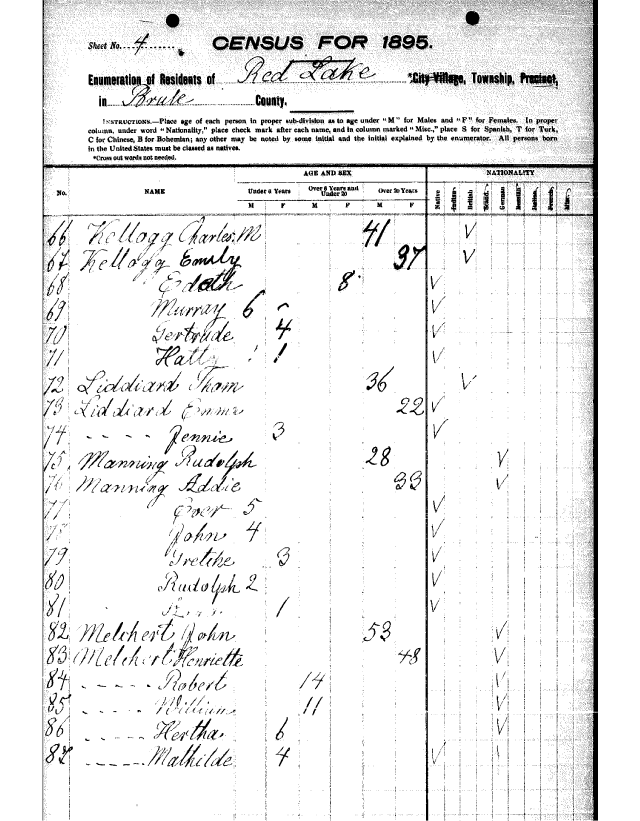 Sheet No. 4
CENSUS FOR 1895.
Enumeration of Residents of Red Lake *City Village, Township, Precinct,
in Brule County.
INSTRUCTIONS.—Place age of each person in proper sub-division as to age under "M" for Males and "F" for Females. In proper
column, under word "Nationality," place check mark after each name, and in column marked "Misc.," place S for Spanish, T for Turk,
C for Chinese, B for Bohemian; any other may be noted by some initial and the initial explained by the enumerator. All persons born
in the United States must be classed as natives.
*Cross out words not needed.
AGE AND SEX NATIONALITY
No. NAME Under 6 Years Over 6 Years and Under 20 Over 20 Years Native Indian British Scand. German Russian Italian French Misc.
M F M F M F
66 Kellogg Charles M 41 V
67 Kellogg Emily 37 V
68 Edath 8 V
69 Murray 6 V
70 Gertrude 4 V
71 Hatty 1 V
72 Liddiard Thom 36 V
73 Liddiard Emma 22 V
74 - - - - Jennie 3 V
75 Manning Rudolph 28 V
76 Manning Addie 33 V
77 Ever 5 V
78 John 4 V
79 Gretche 3 V
80 Rudolph 2 V
81 1 V
82 Melchert John 53 V
83 Melchert Henriette 48 V
84 - - - - - Robert 14 V
85 - - - - - William 11 V
86 - - - - - Hertha 6 V
87 - - - - - Mathilde 4 V